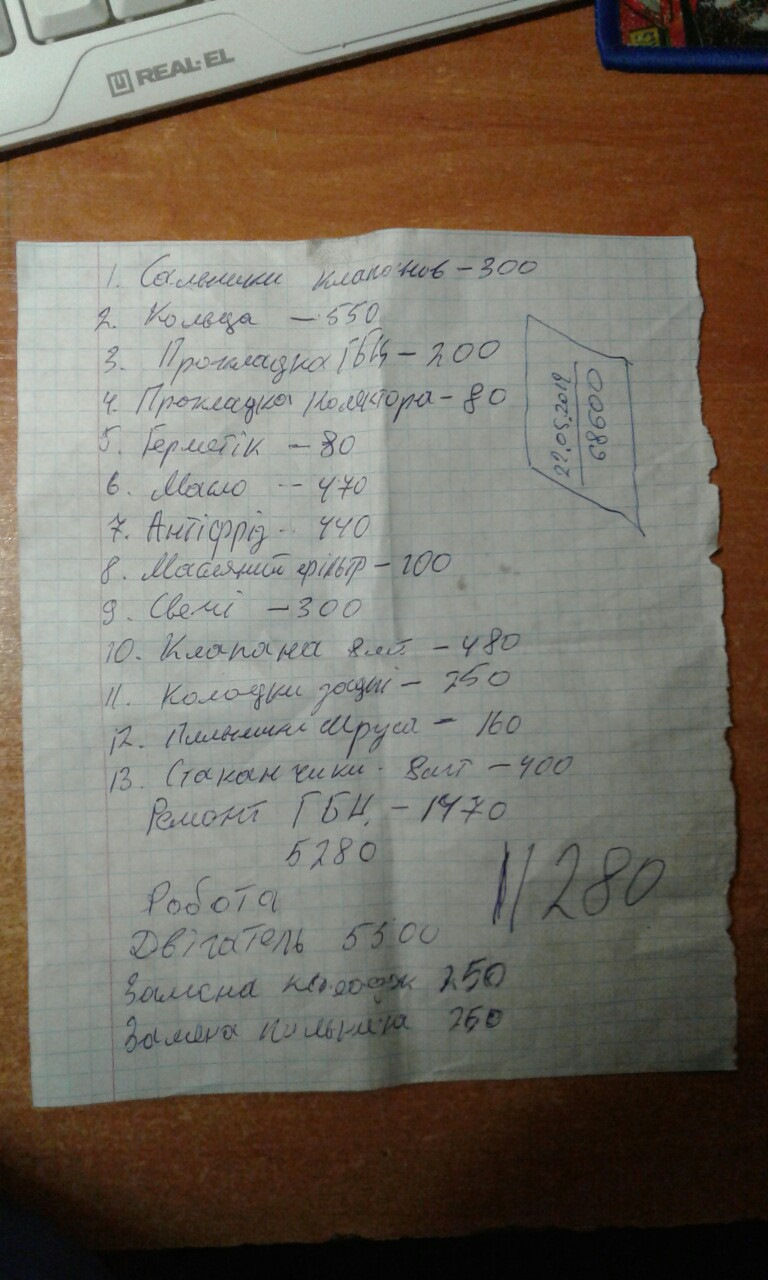 REAL-EL
1. Сальники клапанов - 300
2. Кольца - 550
3. Прокладка ГБЦ - 200
4. Прокладка колектора - 80
5. Герметік - 80
6. Масло -- 470
7. Антіфріз -- 440
8. Масляний фільтр - 100
9. Свечі - 300
10. Клапана 8шт - 480
11. Колодки задні - 250
12. Пильники Шруса - 160
13. Стаканчики - 8шт - 400
Ремонт ГБЦ, - 1470
5280
11280
Робота
Двігатель 5500
Замена колодок 250
Замена пильника 250
22.05.2019
68600